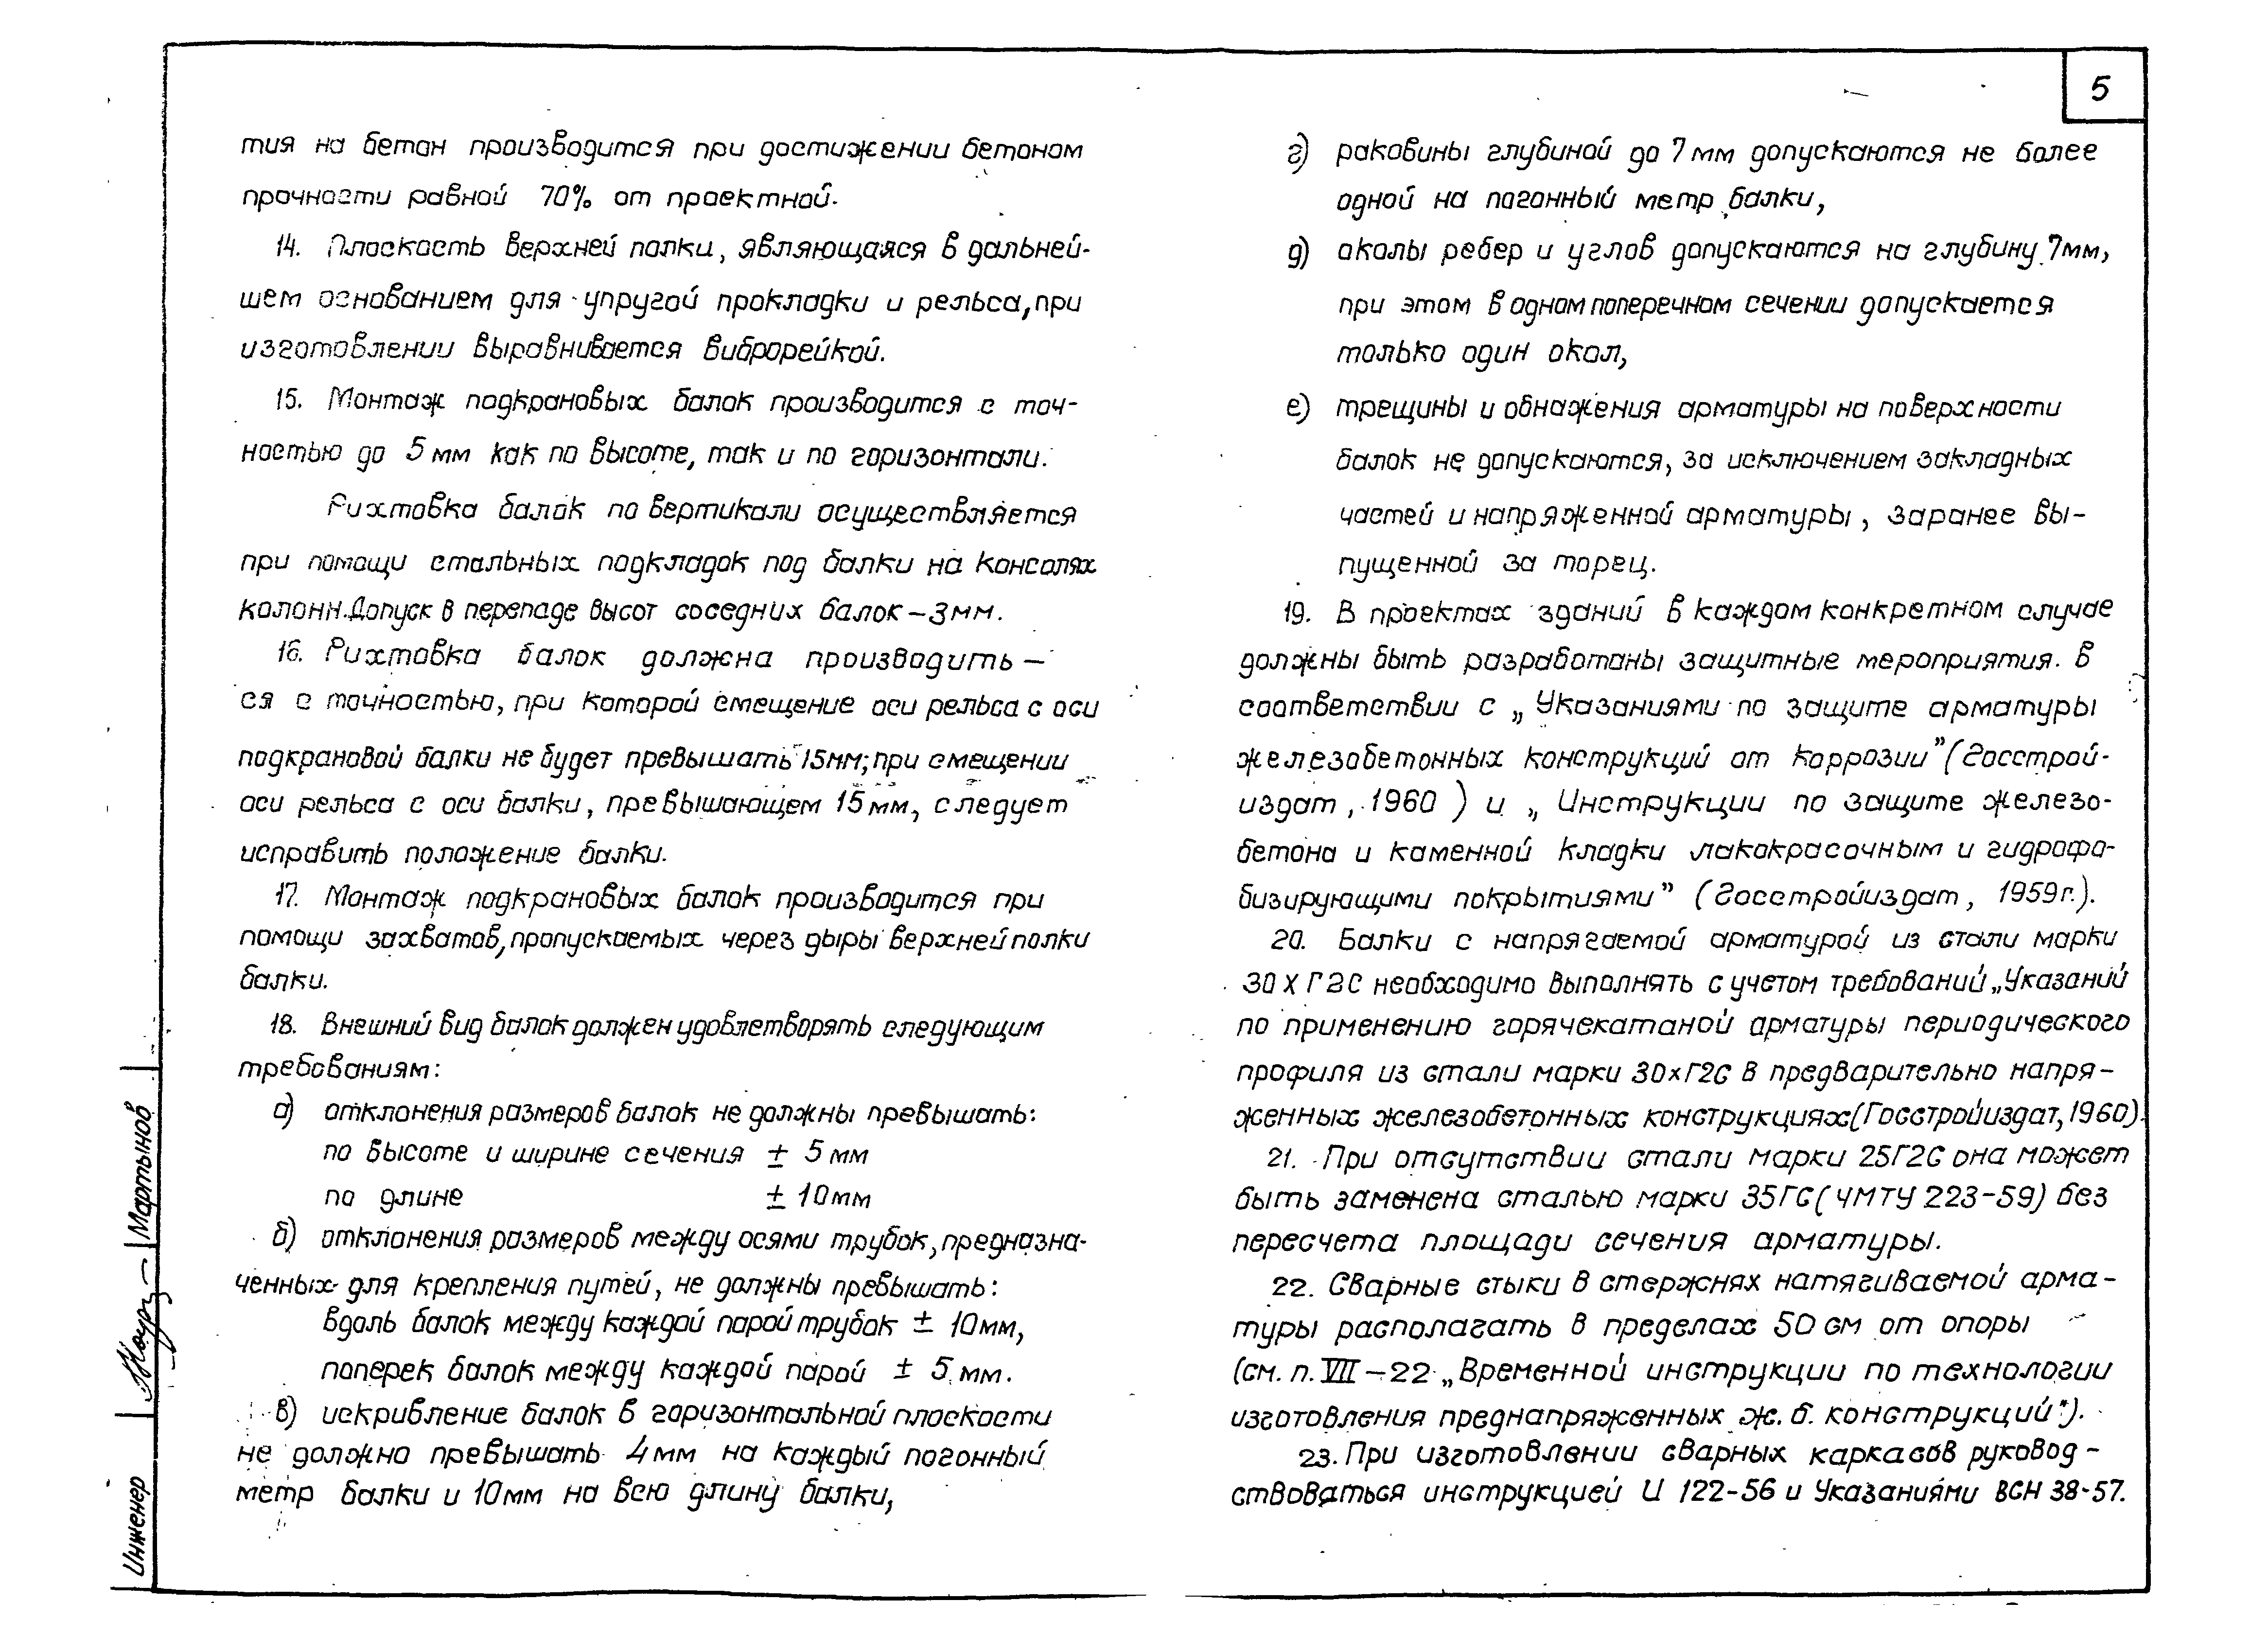 5
тия на бетон производится при достижении бетоном
прочности равной 70% от проектной.
14. Плоскость верхней полки, являющаяся в дальней-
шем основанием для упругой прокладки и рельса, при
изготовлении выравнивается виброрейкой.
15. Монтаж подкрановых балок производится с точ-
ностью до 5 мм как по высоте, так и по горизонтали.
Рихтовка балок по вертикали осуществляется
при помощи стальных подкладок под балки на консолях
колонн. Допуск в перепаде высот соседних балок – 3мм.
16. Рихтовка балок должна производить –
ся с точностью, при которой смещение оси рельса с оси
подкрановой балки не будет превышать 15мм; при смещении
оси рельса с оси балки, превышающем 15 мм, следует
исправить положение балки.
17. Монтаж подкрановых балок производится при
помощи захватов, пропускаемых через дыры верхней полки
балки.
18. Внешний вид балок должен удовлетворять следующим
требованиям:
а) отклонения размеров балок не должны превышать:
по высоте и ширине сечения ± 5 мм
по длине ± 10мм
б) отклонения размеров между осями трубок, предназна-
ченных для крепления путей, не должны превышать:
вдоль балок между каждой парой трубок ± 10мм,
поперек балок между каждой парой ± 5 мм.
в) искривление балок в горизонтальной плоскости
не должно превышать 4 мм на каждый погонный
метр балки и 10мм на всю длину балки,
г) раковины глубиной до 7 мм допускаются не более
одной на погонный метр балки,
д) околы ребер и углов допускаются на глубину 7мм,
при этом в одном поперечном сечении допускается
только один окол,
е) трещины и обнажения арматуры на поверхности
балок не допускаются, за исключением закладных
частей и напряженной арматуры, заранее вы-
пущенной за торец.
19. В проектах зданий в каждом конкретном случае
должны быть разработаны защитные мероприятия. В
соответствии с „Указаниями по защите арматуры
железобетонных конструкций от коррозии” (Госстрой-
издат, 1960) и „Инструкции по защите железо-
бетона и каменной кладки лакокрасочным и гидрофо-
бизирующими покрытиями” (Госстройиздат, 1959г.).
20. Балки с напрягаемой арматурой из стали марки
30ХГ2С необходимо выполнять с учетом требований „Указаний
по применению горячекатаной арматуры периодического
профиля из стали марки 30хГ2С в предварительно напря-
женных железобетонных конструкциях (Госстройиздат, 1960).
21. При отсутствии стали марки 25Г2С она может
быть заменена сталью марки 35ГС (ЧМТУ 223-59) без
пересчета площади сечения арматуры.
22. Сварные стыки в стержнях натягиваемой арма-
туры располагать в пределах 50 см от опоры
(см. п. VII – 22 „Временной инструкции по технологии
изготовления преднапряженных ж.б. конструкций”).
23. При изготовлении сварных каркасов руковод-
ствоваться инструкцией И 122-56 и Указаниями ВСН 38-57.
Инженер
Мартынов